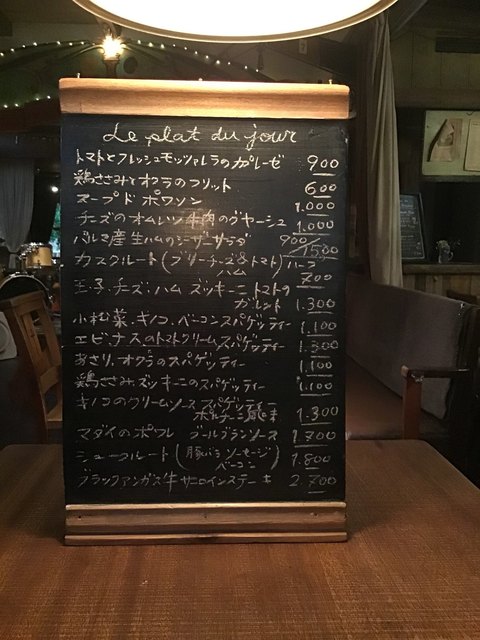 Le plat du jour
トマトとフレッシュモッツァレラのカプレーゼ 900
鶏ささみとオクラのフリット 600
スープドポワソン 1.000
チーズのオムレツ 牛肉のグヤーシュ 1.000
パルマ産生ハムのシーザーサラダ 900/1500
カスクルート(ブリーチーズ&トマト)ハーフ
ハム 700
玉子、チーズ、ハム ズッキーニトマトの
ガレット 1.300
小松菜、キノコ、ベーコンスパゲッティー 1.100
エビ、ナスのトマトクリームスパゲッティー 1.300
あさり、オクラのスパゲッティー 1.100
鶏ささみズッキーニのスパゲッティー 1.100
キノコのクリームソーススパゲッティー
ポルチーニ風味 1.300
マダイのポワレ ブールブランソース 1.700
シュークルート(豚バラ ソーセージ
ベーコン) 1.800
ブラックアンガス牛サーロインステーキ 2.700